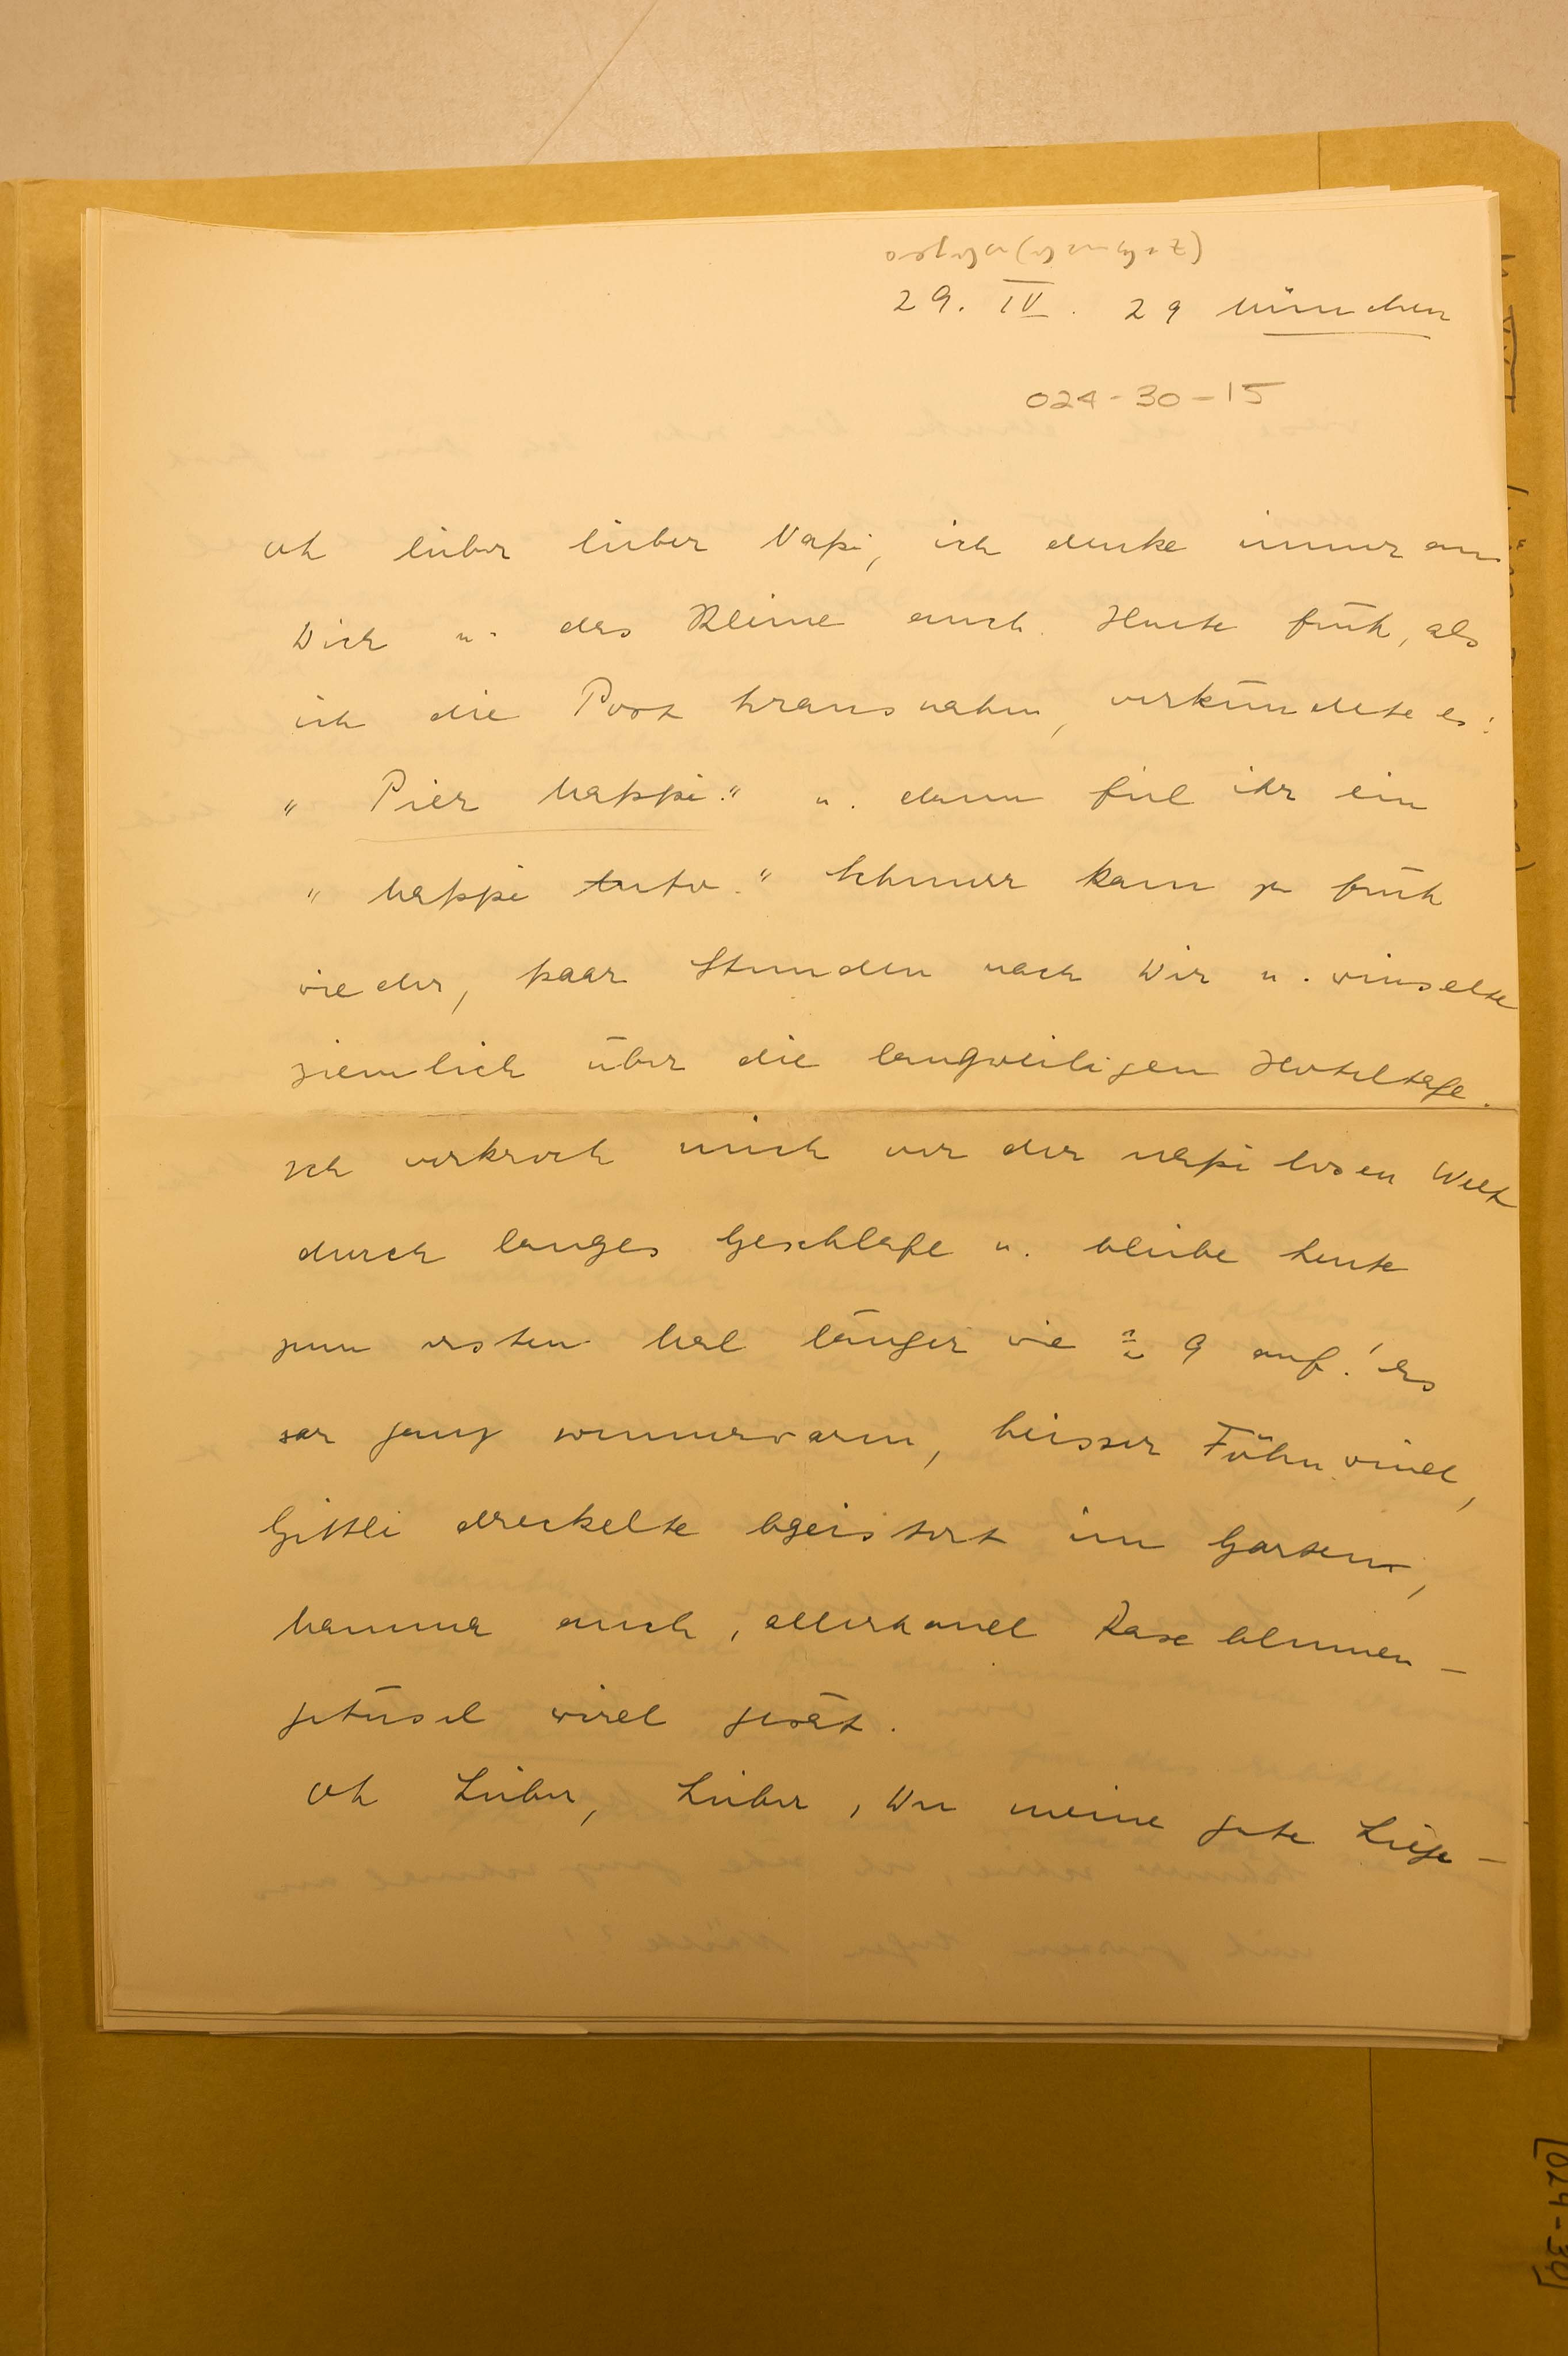 29. IV. 29 München
024-30-15
Oh lieber lieber Napi, ich denke immer an
Dich u. das Kleine auch. Heute früh, als
ich die Post hrausnahm, verkündete es:
" Pier Mappi." u. dann fiel ihr ein
" Mappi tuto." Schnurr kam zu früh
wieder, paar Stunden nach Dir u. winselte
ziemlich über die langweiligen Hoteltage.
Ich verkroch mich vor der napilosen Welt
durch langes Geschlafe u. bleibe heute
zum ersten Mal länger wie 9 auf! Es
war ganz sommerwarm, heisser Föhnwind,
Gittli dreckelte bgeistert im Garten,
Mamma auch, allerhand Rase blumen-
getüsel wird gesät.
Oh Lieber, Lieber, Du meine gute
[024-30]